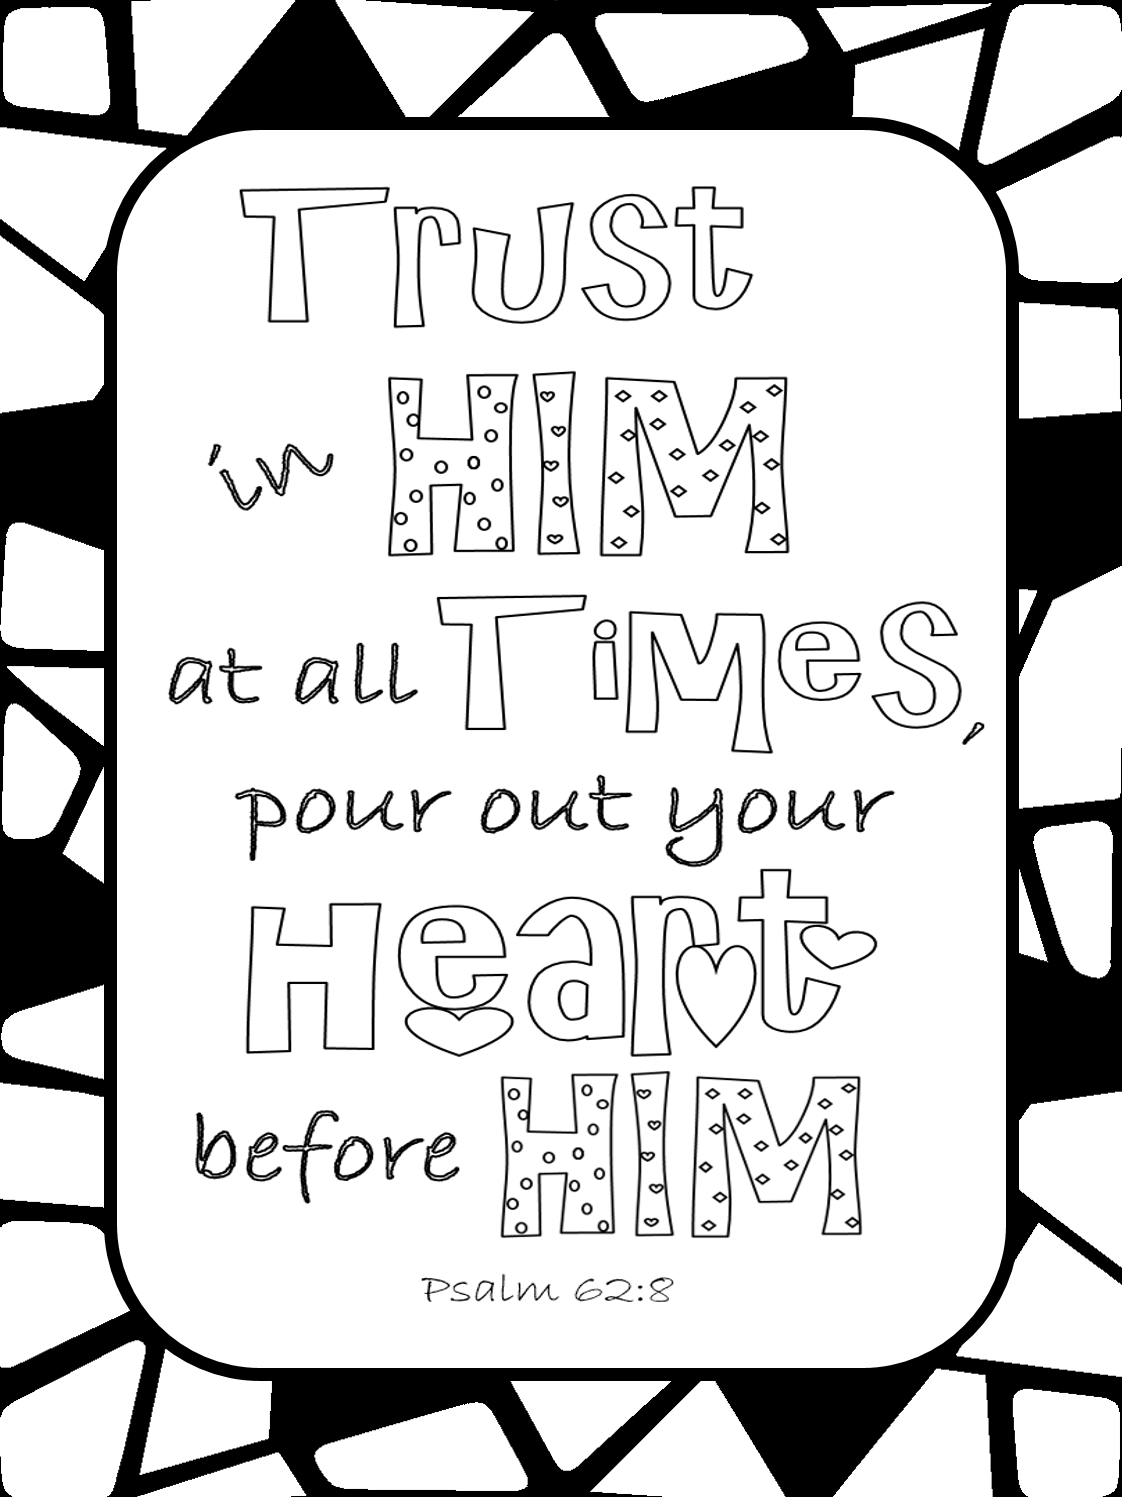 Trust
in HIM
at all TiMes,
pour out your
Heart
before HIM
Psalm 62:8